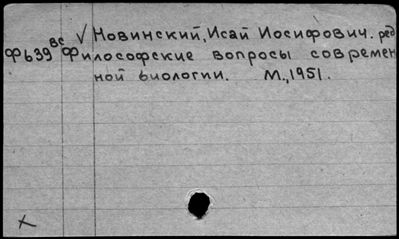 вс √ Новинский, Исай Иосифович. ред
ФЬ639 Философские вопросы современ
ной биологии. М., 1951.
X